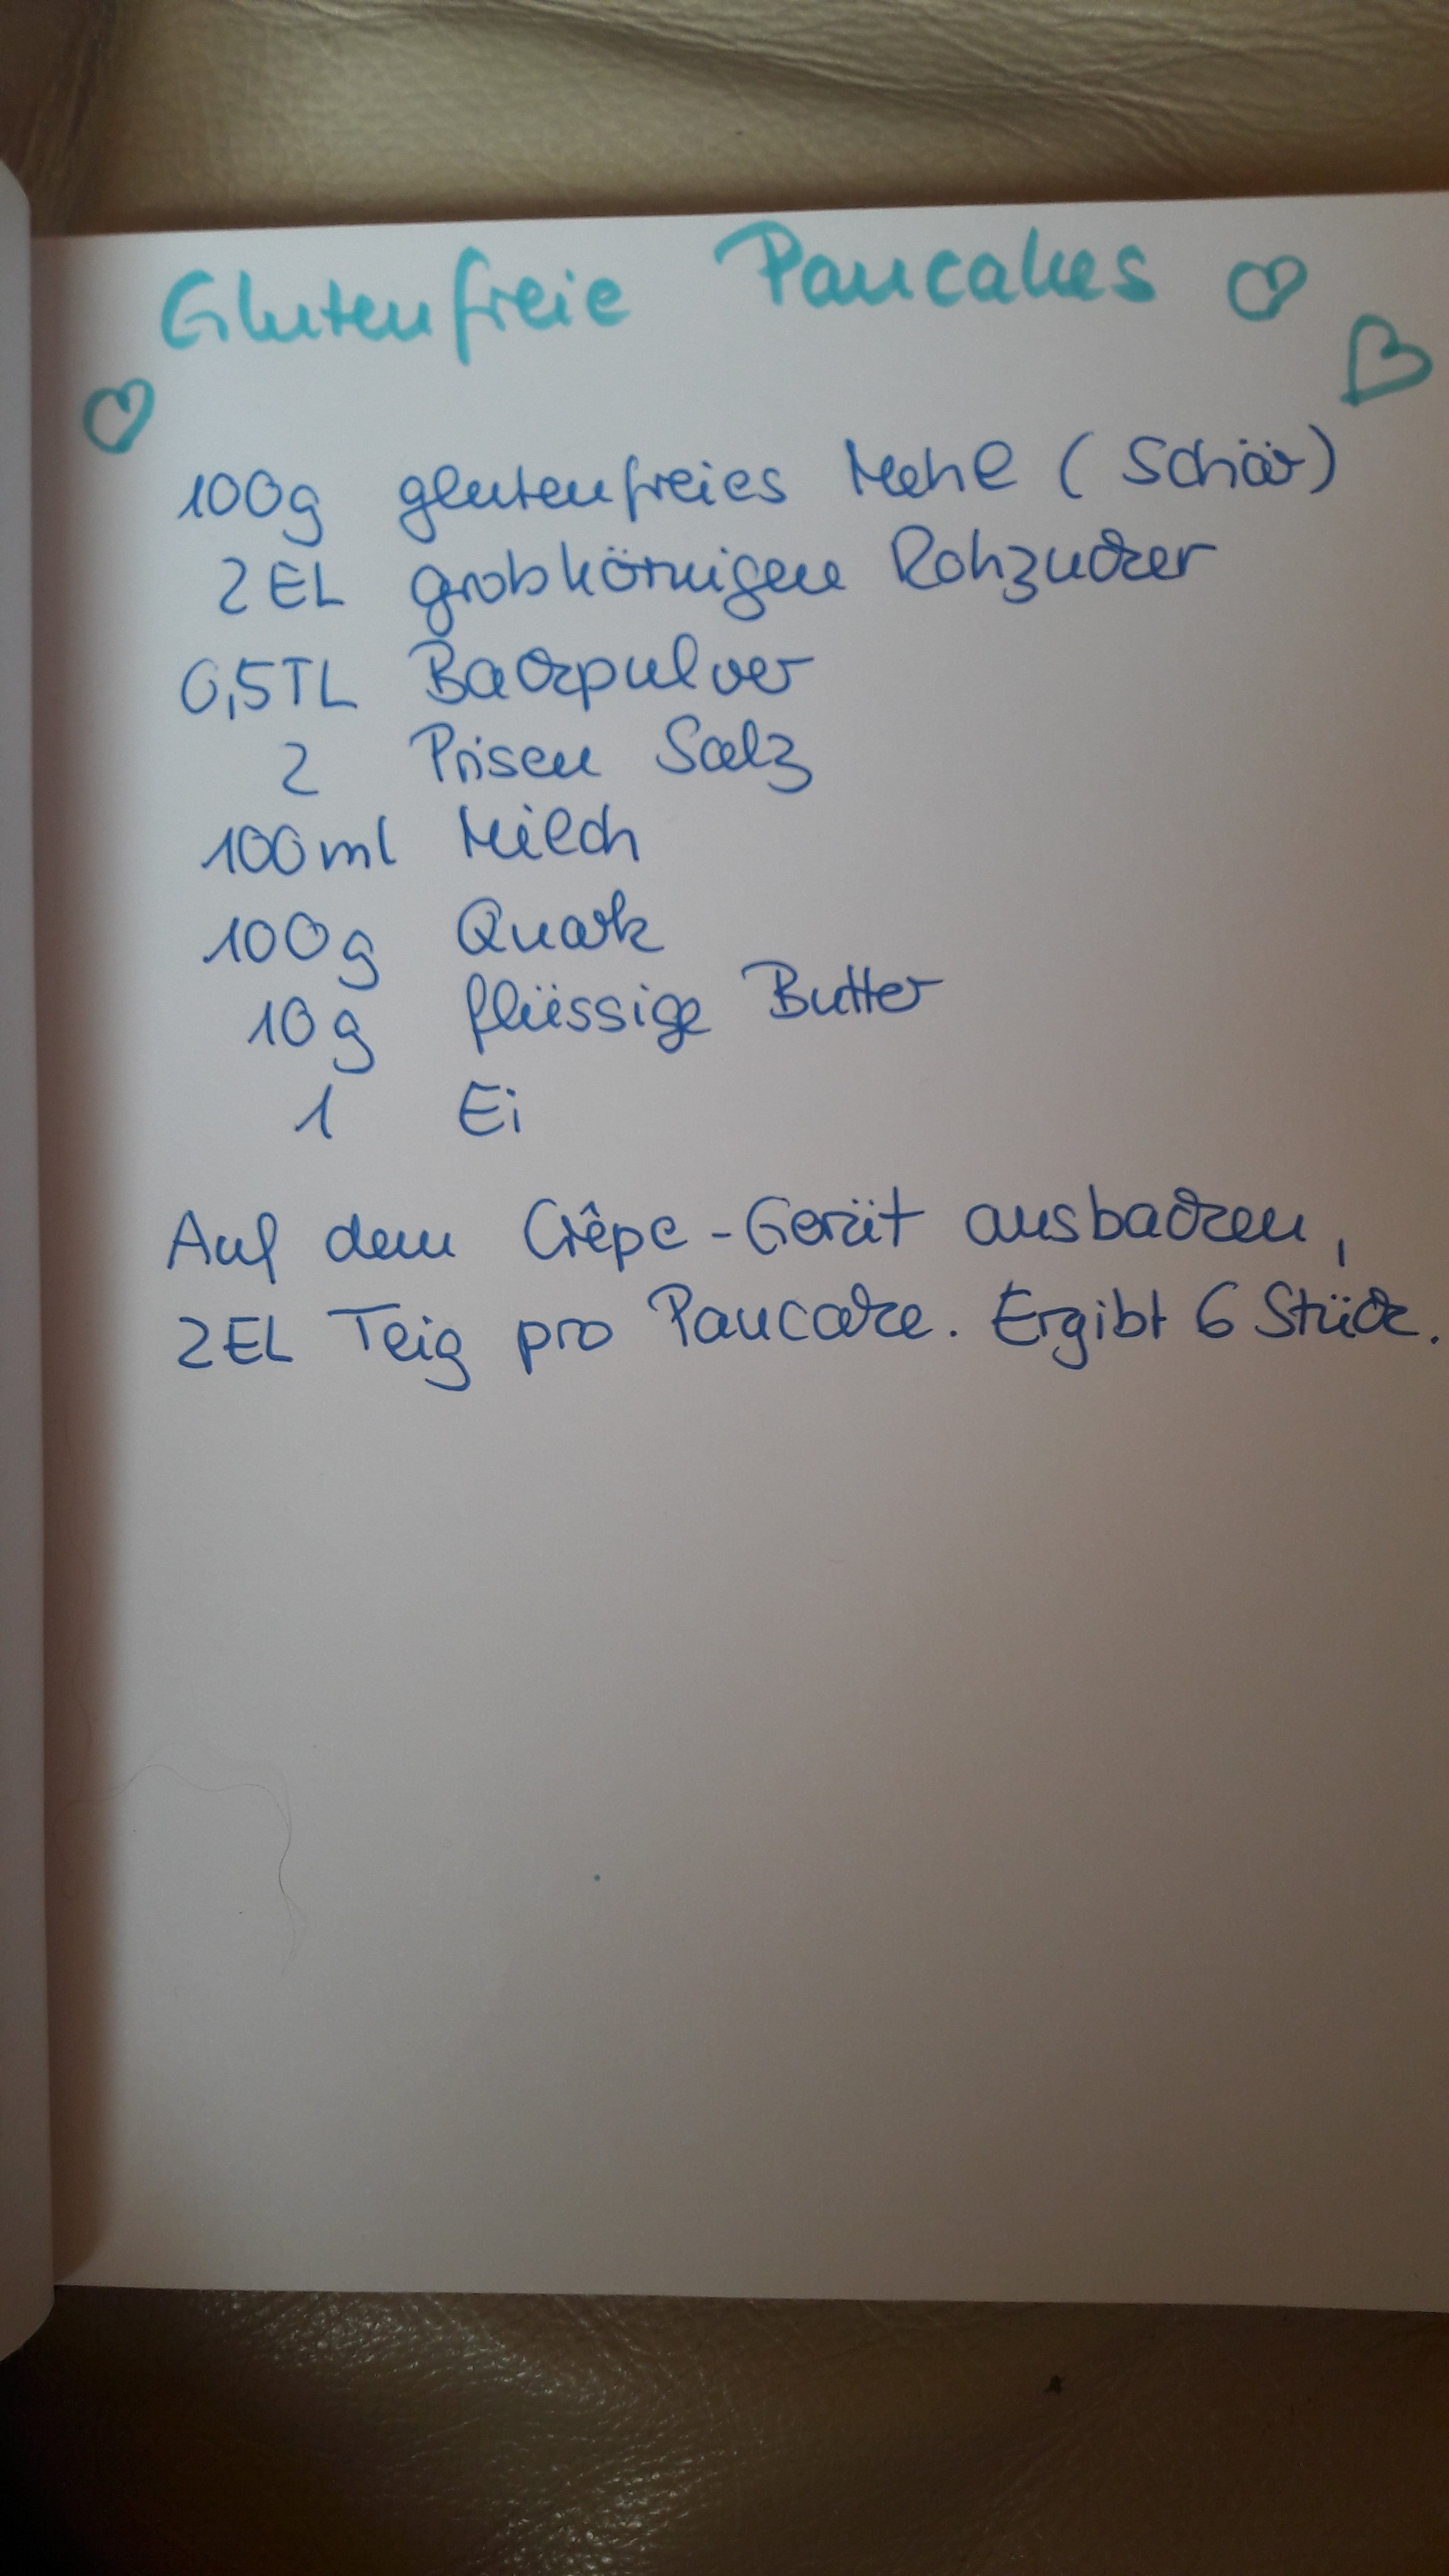 Glutenfreie Pancakes
100g glutenfreies Mehl (Schär)
2EL grobkörnigen Rohzucker
0,5TL Backpulver
2 Prisen Salz
100ml Milch
100g Quark
10g flüssige Butter
1 Ei
Auf dem Crêpe-Gerät ausbacken,
2EL Teig pro Pancake. Ergibt 6 Stück.